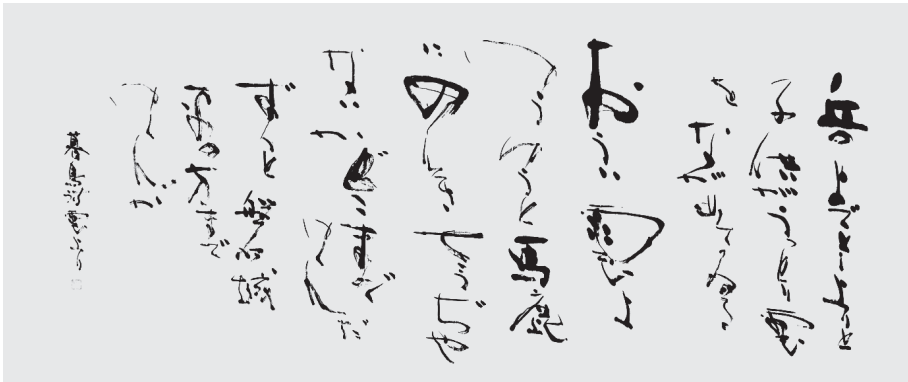 丘の上でとしよりと
子供とうつとりと雲
をながめてゐる
おうい雲よ
ゆうゆうと馬鹿
にのんきさうぢや
ないかどこまでゆくんだ
ずつと磐城
平の方まで
ゆくんだ
暮鳥詩雲より